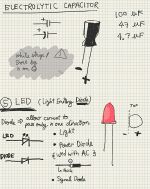 ELECTROLYTIC CAPACITOR
100 uF
47 uF
4.7 uF
white stripe /
⑤ LED (Light Emitting Diode)
Diode ⇒ allow current to
pass only in one direction
LED
• Light
• Power Diode
used with AC
DIODE
• Signal Diode